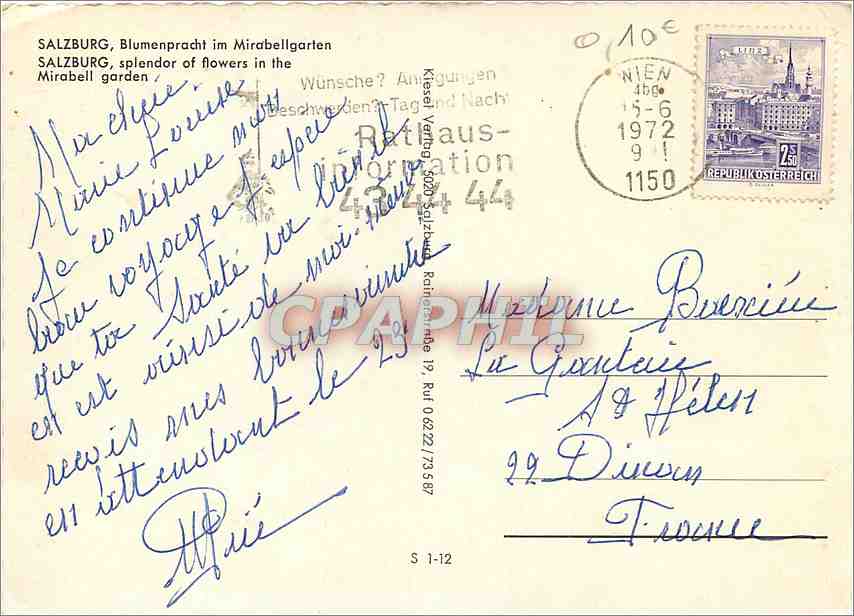 SALZBURG, Blumenpracht im Mirabellgarten
SALZBURG, splendor of flowers in the
Mirabell garden
Ma chérie
Marie Louise
Je continue mon
beau voyage J espère
que ta Santé va bien il
en est ainsi de moi-même
reçois mes bons
en attendant le 23
Wünsche? Anregungen
Beschwerden? Tag und Nacht
Rathaus-
information
43 44 44
Kiesel Verlag, 5020 Salzburg, Rainerstraße 19, Ruf 0 62 22 / 73 5 87
S 1-12
0,10€
WIEN
4bg
15-6
1972
9
1150
LINZ
2.50
REPUBLIK ÖSTERREICH
CPAPHIL
Madame
La
St Hélen
22 Dinan
France